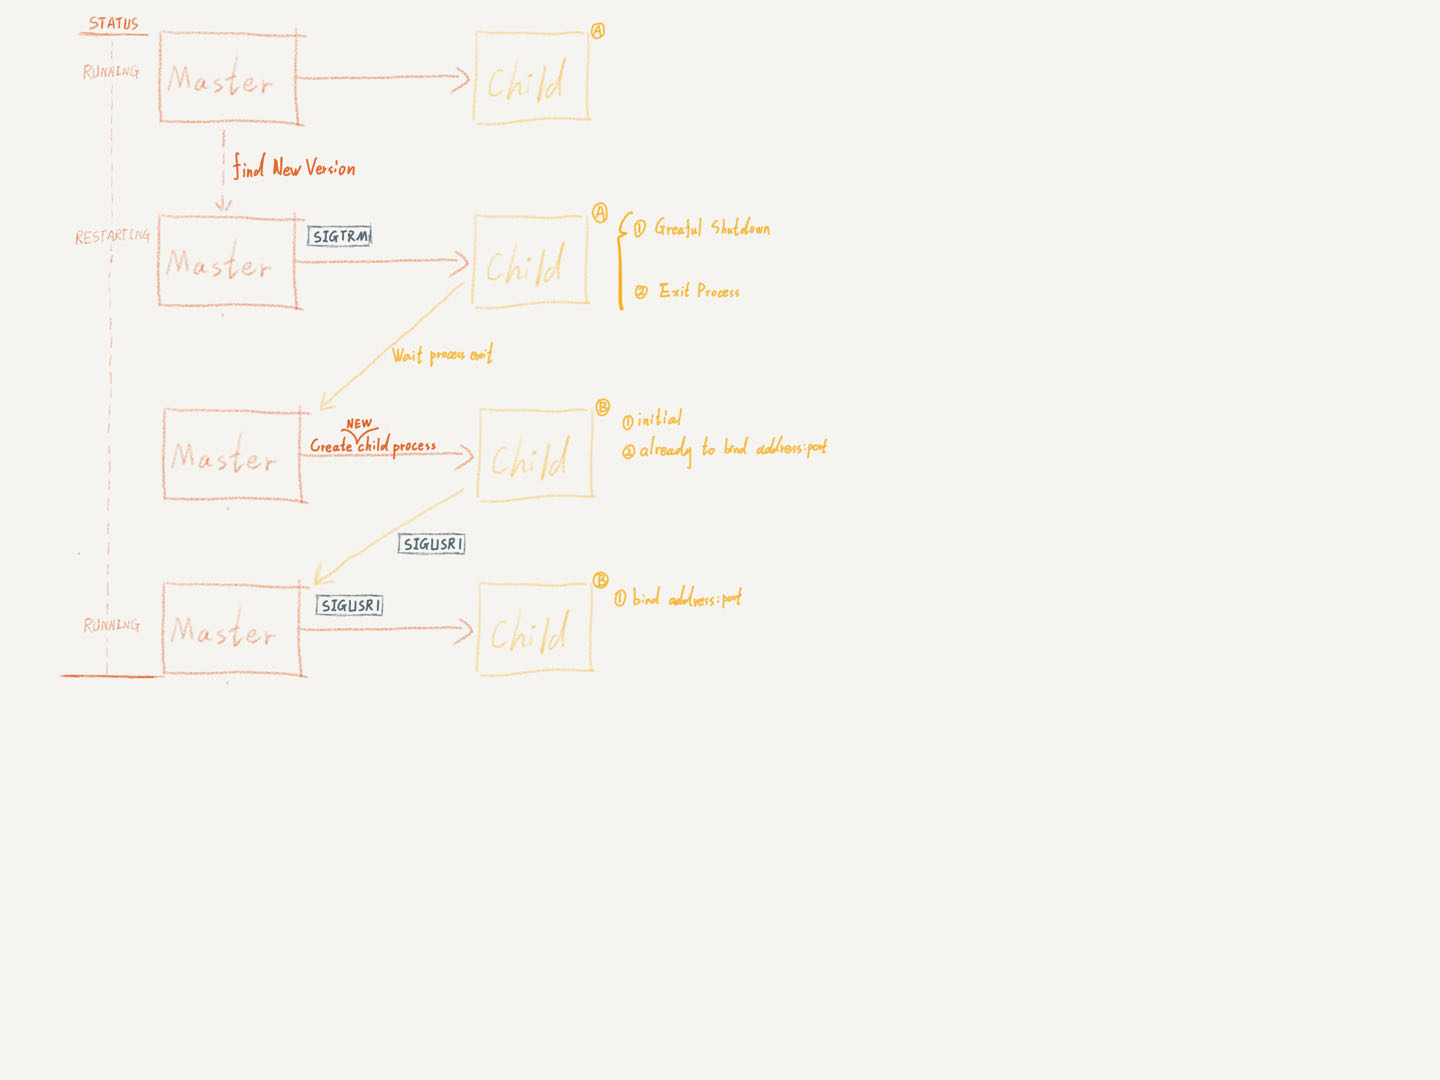 STATUS
RUNNING
Master
Child
A
find New Version
RESTARTING
Master
SIGTRM
Child
A
① Greaful Shutdown
② Exit Process
Wait process exit
Master
NEW
Create child process
Child
B
① initial
② already to bind address:port
SIGUSR1
RUNNING
Master
SIGUSR1
Child
B
① bind address:port